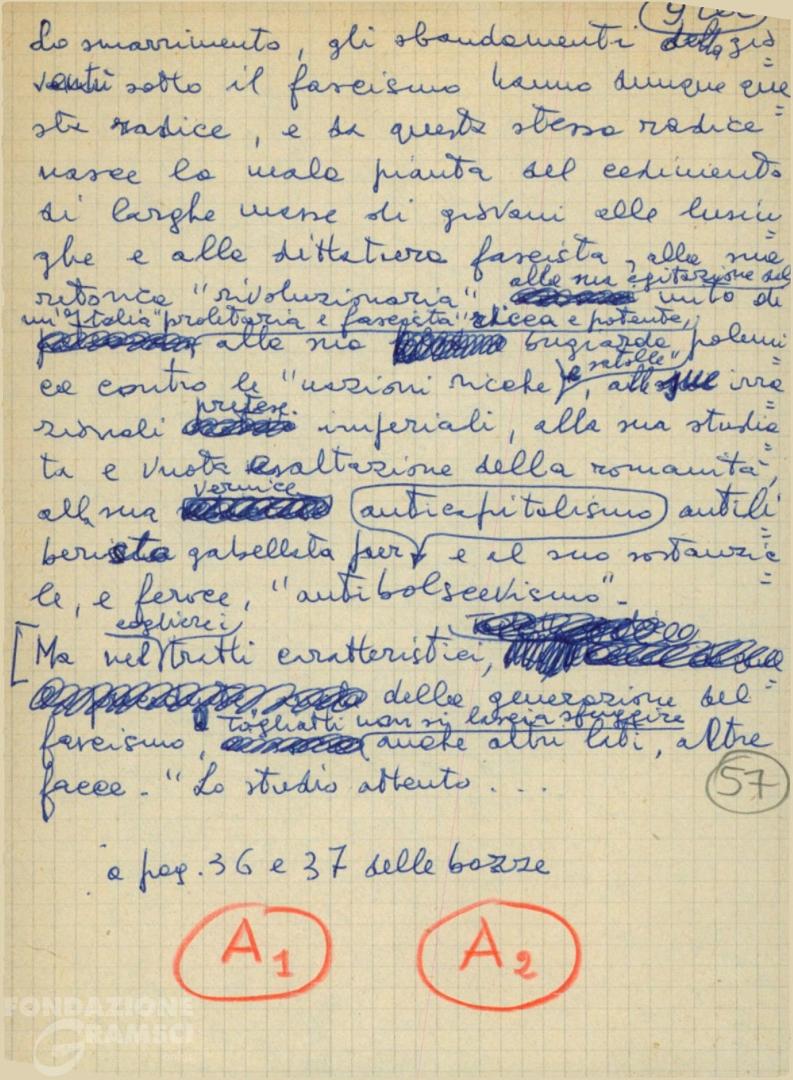 Lo smarrimento, gli sbandamenti della gio=
ventù sotto il fascismo hanno dunque que=
sta radice, e da questa stessa radice
nasce la mala pianta del cedimento
di larghe masse di giovani alle lusin=
ghe e alla dittatura fascista, alla sua
alla sua agitazione del
retorica "rivoluzionaria", mito di
un'"Italia "proletaria e fascista" ricca e potente,
alla sua bugiarda polemi=
e satolle"
ca contro le "nazioni ricche, alle sue irra=
pretese
zionali imperiali, alla sua studia=
ta e vuota esaltazione della romanità,
vernice
alla sua anticapitalismo antili=
berista gabellata per e al suo sostanzia=
le, e feroce, "antibolscevismo".
coglierci
[Ma nel tratti caratteristici,
della generazione del
Togliatti non si lascia sfuggire
fascismo, anche altri lati, altre
facce. "Lo studio attento ...
57
a pag. 36 e 37 delle bozze
A1 A2
FONDAZIONE
GRAMSCI